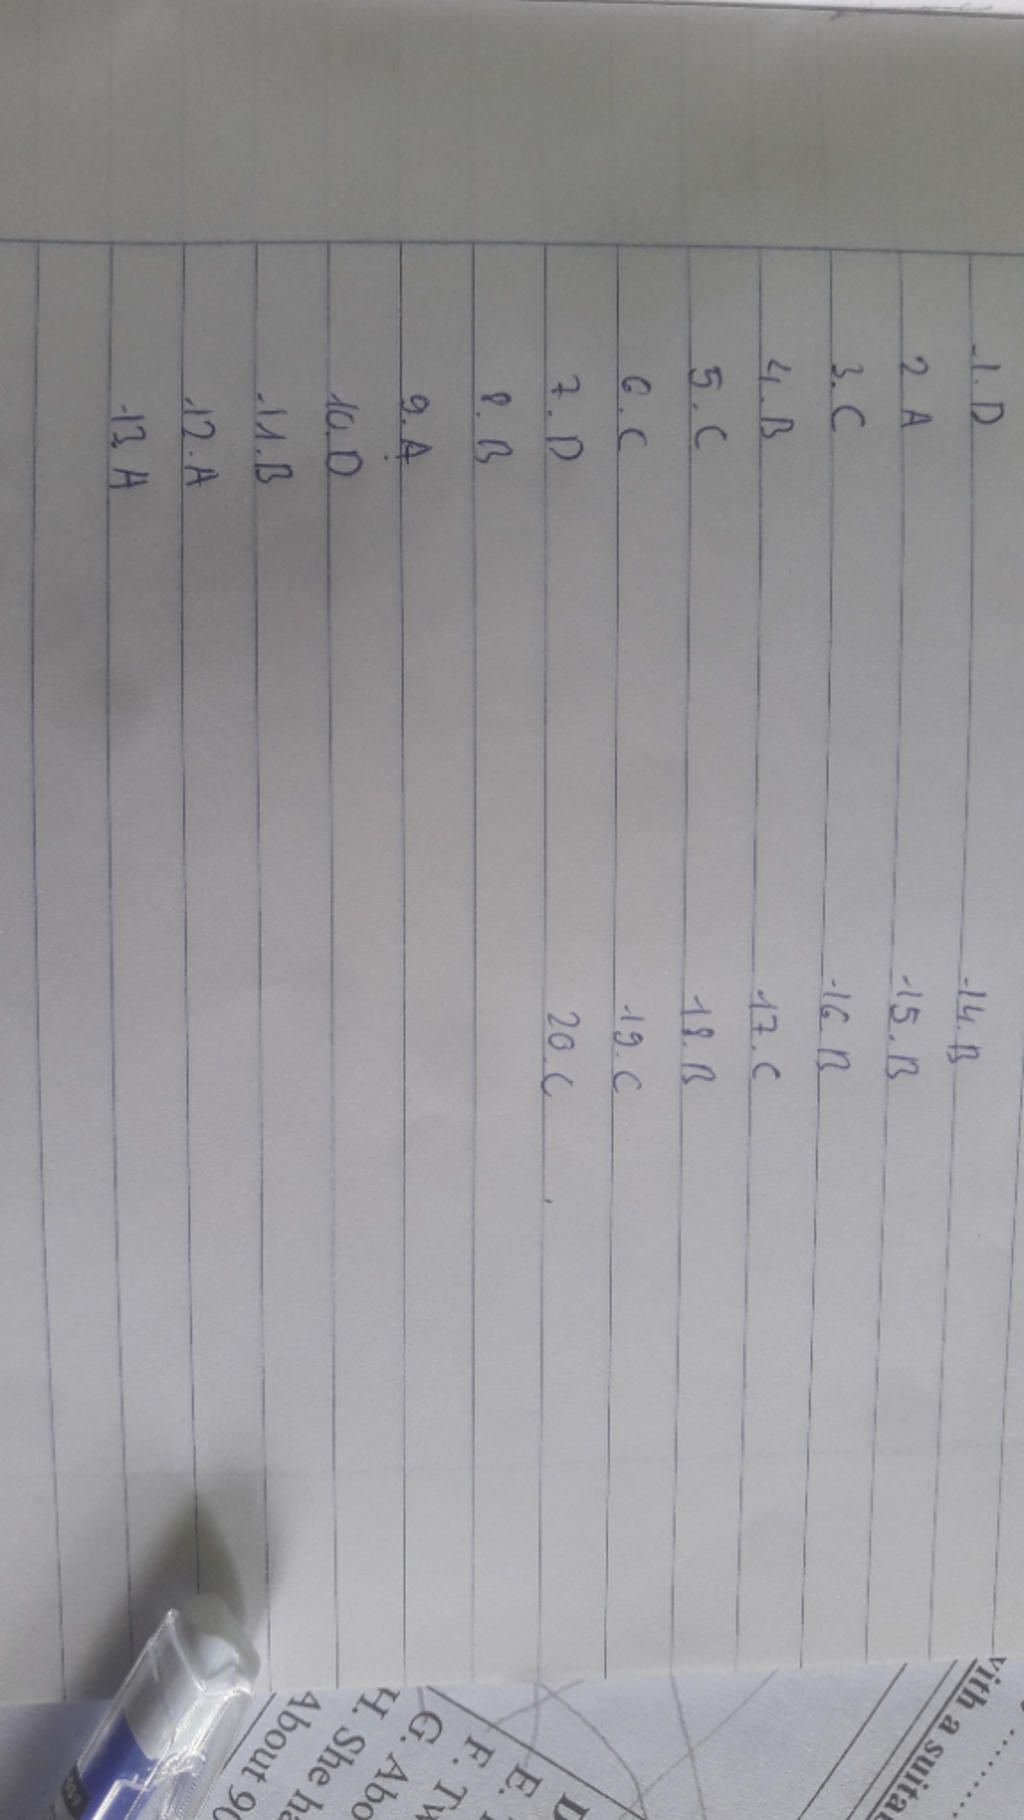 1. D
2 A
3. C
4. B
5. C
6. C
7. D
8. B
9. A
10. D
11. B
12. A
13. A
14. B
15. B
16. B
17. C
18. B
19. C
20. C
with a
E.
F.
G. Abo
H. She ha
About 90